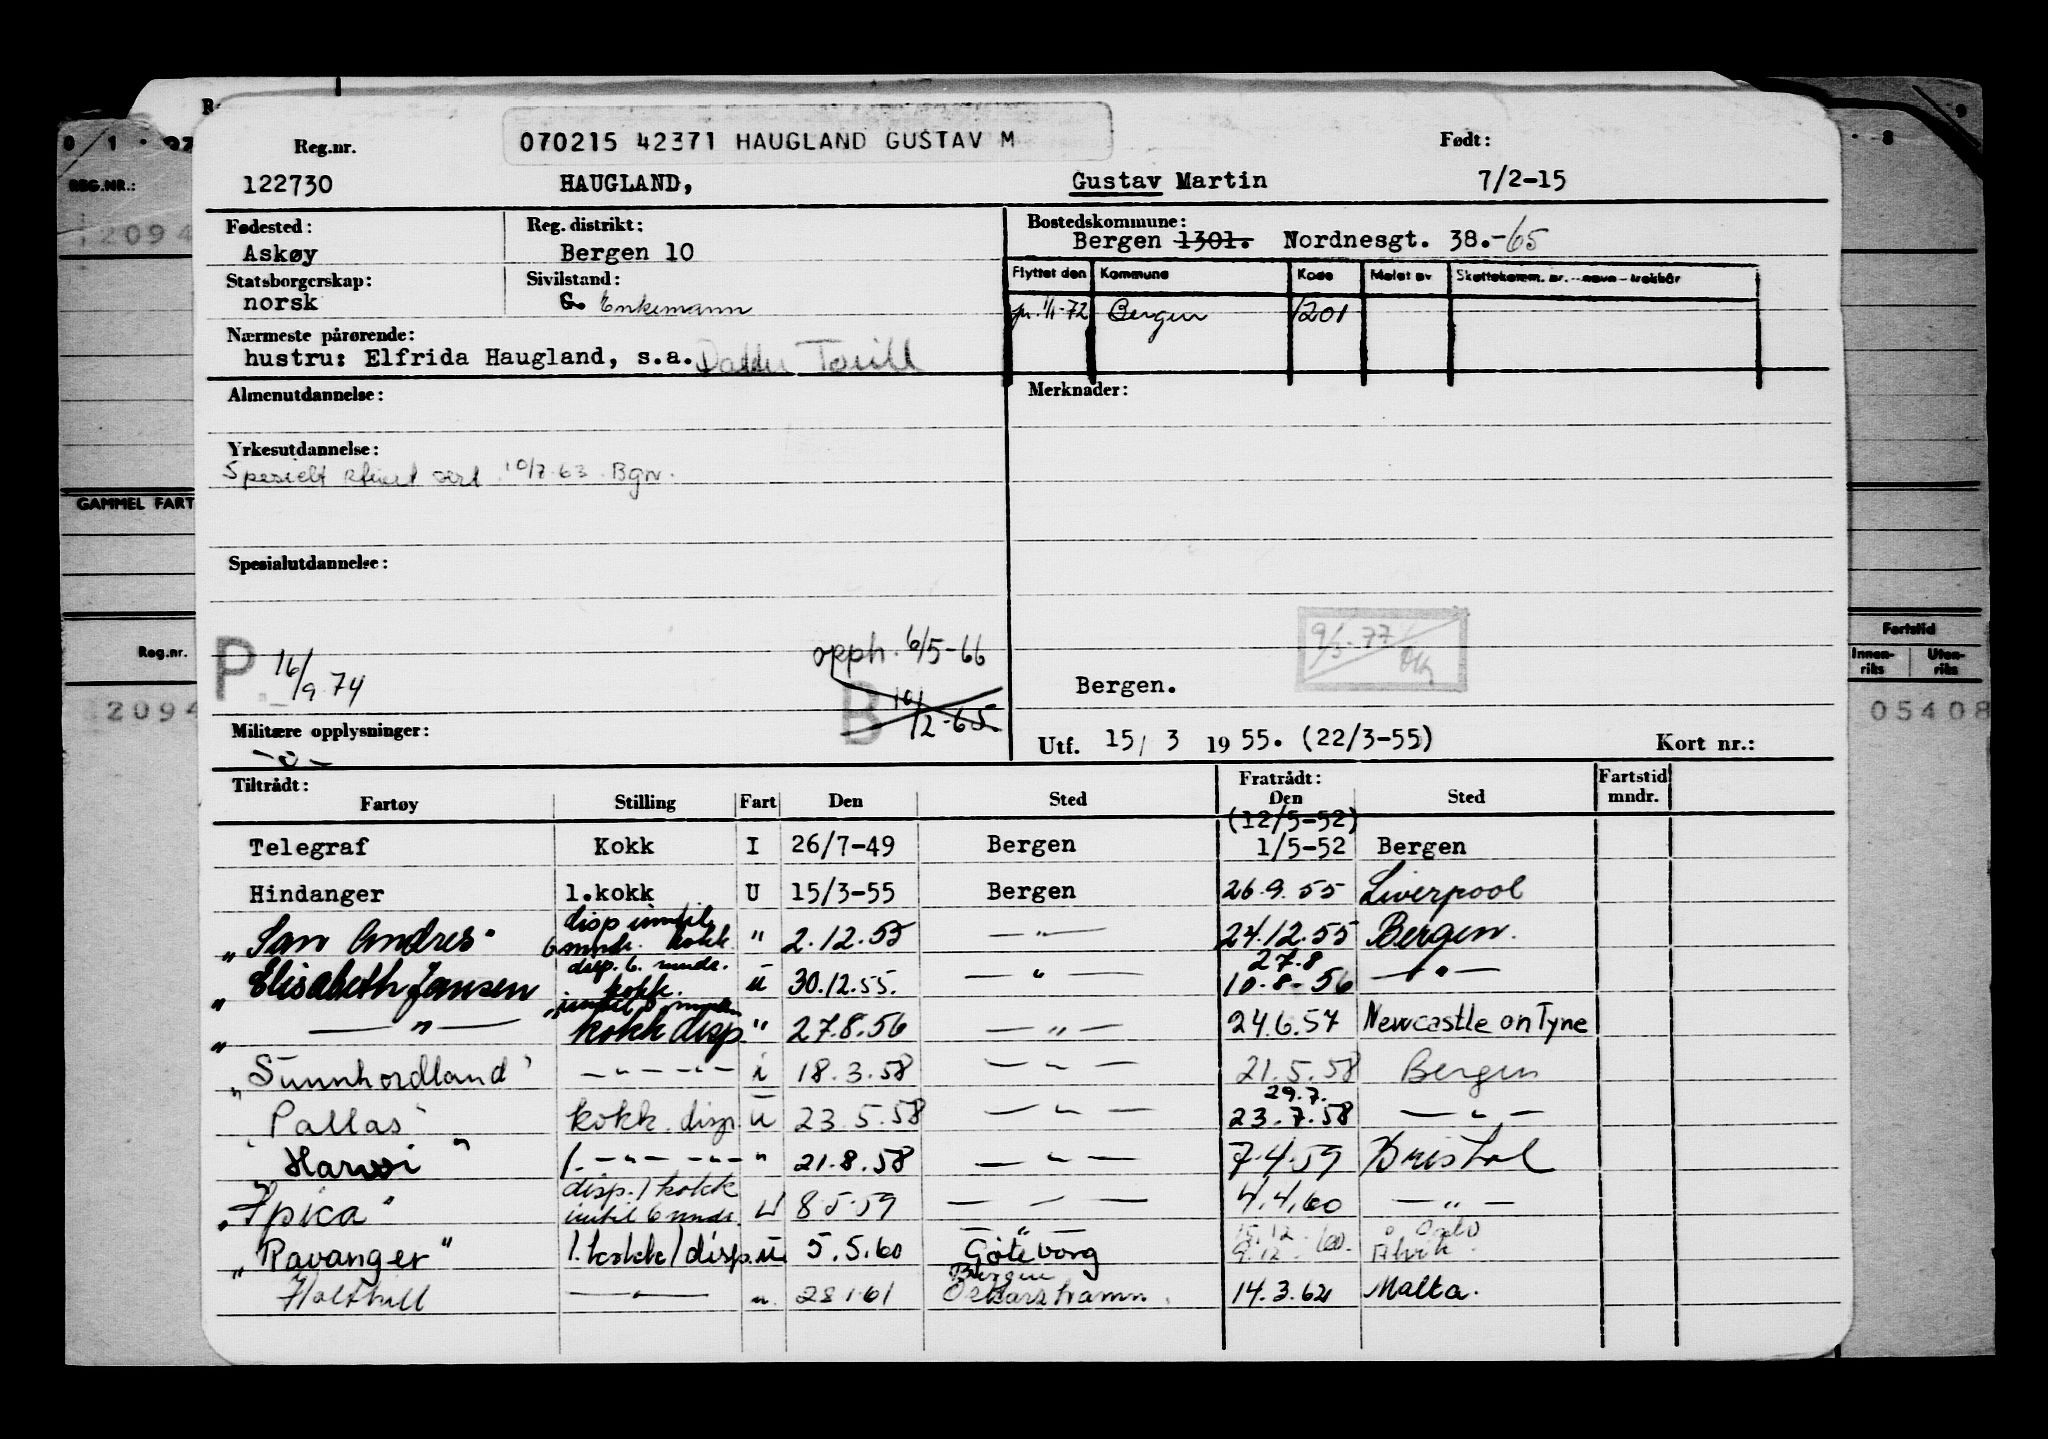 070215 42371 HAUGLAND GUSTAV M
Reg.nr. Født:
122730 HAUGLAND, Gustav Martin 7/2-15
Fødested: Reg. distrikt: Bostedskommune:
Askøy Bergen 10 Bergen 1301. Nordnesgt. 38.-65
Statsborgerskap: Sivilstand: Flyttet den Kommune Kode Meldt av
norsk G. Enkemann 1/1-72 Bergen 1201
Nærmeste pårørende:
hustru: Elfrida Haugland, s.a. Datter Torill
Almenutdannelse: Merknader:
Yrkesutdannelse:
Spesielt sert. 10/7-63. Bgn.
GAMMEL FART
Spesialutdannelse:
Reg.nr. Fartstid
Innen-riks Uten-riks
P. 16/9 74 opph. 6/5-66 9/3-77
B 10/2-65 Bergen.
2094 05408
Militære opplysninger: Utf. 15/ 3 1955. (22/3-55) Kort nr.:
-o-
Tiltrådt: Fratrådt: Fartstid
Fartøy Stilling Fart Den Sted Den Sted mndr.
(12/5-52)
Telegraf Kokk I 26/7-49 Bergen 1/5-52 Bergen
Hindanger 1.kokk U 15/3-55 Bergen 26.9.55 Liverpool
disp inntil
"San Andres" 6 mndr. kokk " 2.12.55 —"— 24.12.55 Bergen.
disp. 6. mndr. 27.8
"Elisabeth Jansen kokk. u 30.12.55. —"— 10.8-56 —"—
inntil 6 mndr.
" —"— kokk disp. " 27.8.56 —"— 24.6.57 Newcastle on Tyne
"Sunnhordland" —"— —"— i 18.3.58 —"— 21.5.58 Bergen
29.7.
"Pallas" kokk. disp. u 23.5.58 —"— 23.7.58 —"—
"Harvi" 1. —"— —"— " 21.8.58 —"— 7.4.59 Bristol
disp. 1 kokk
"Spica" inntil 6 mndr. U 8.5.59 —"— 4.4.60 —"—
15.12 Oslo
"Ravanger" 1. kokk/disp. u 5.5.60 Göteborg 9.12.60. Ålvik.
Bergen
Holthill —"— u. 28.1.61 Oskarshamn. 14.3.62 Malta.